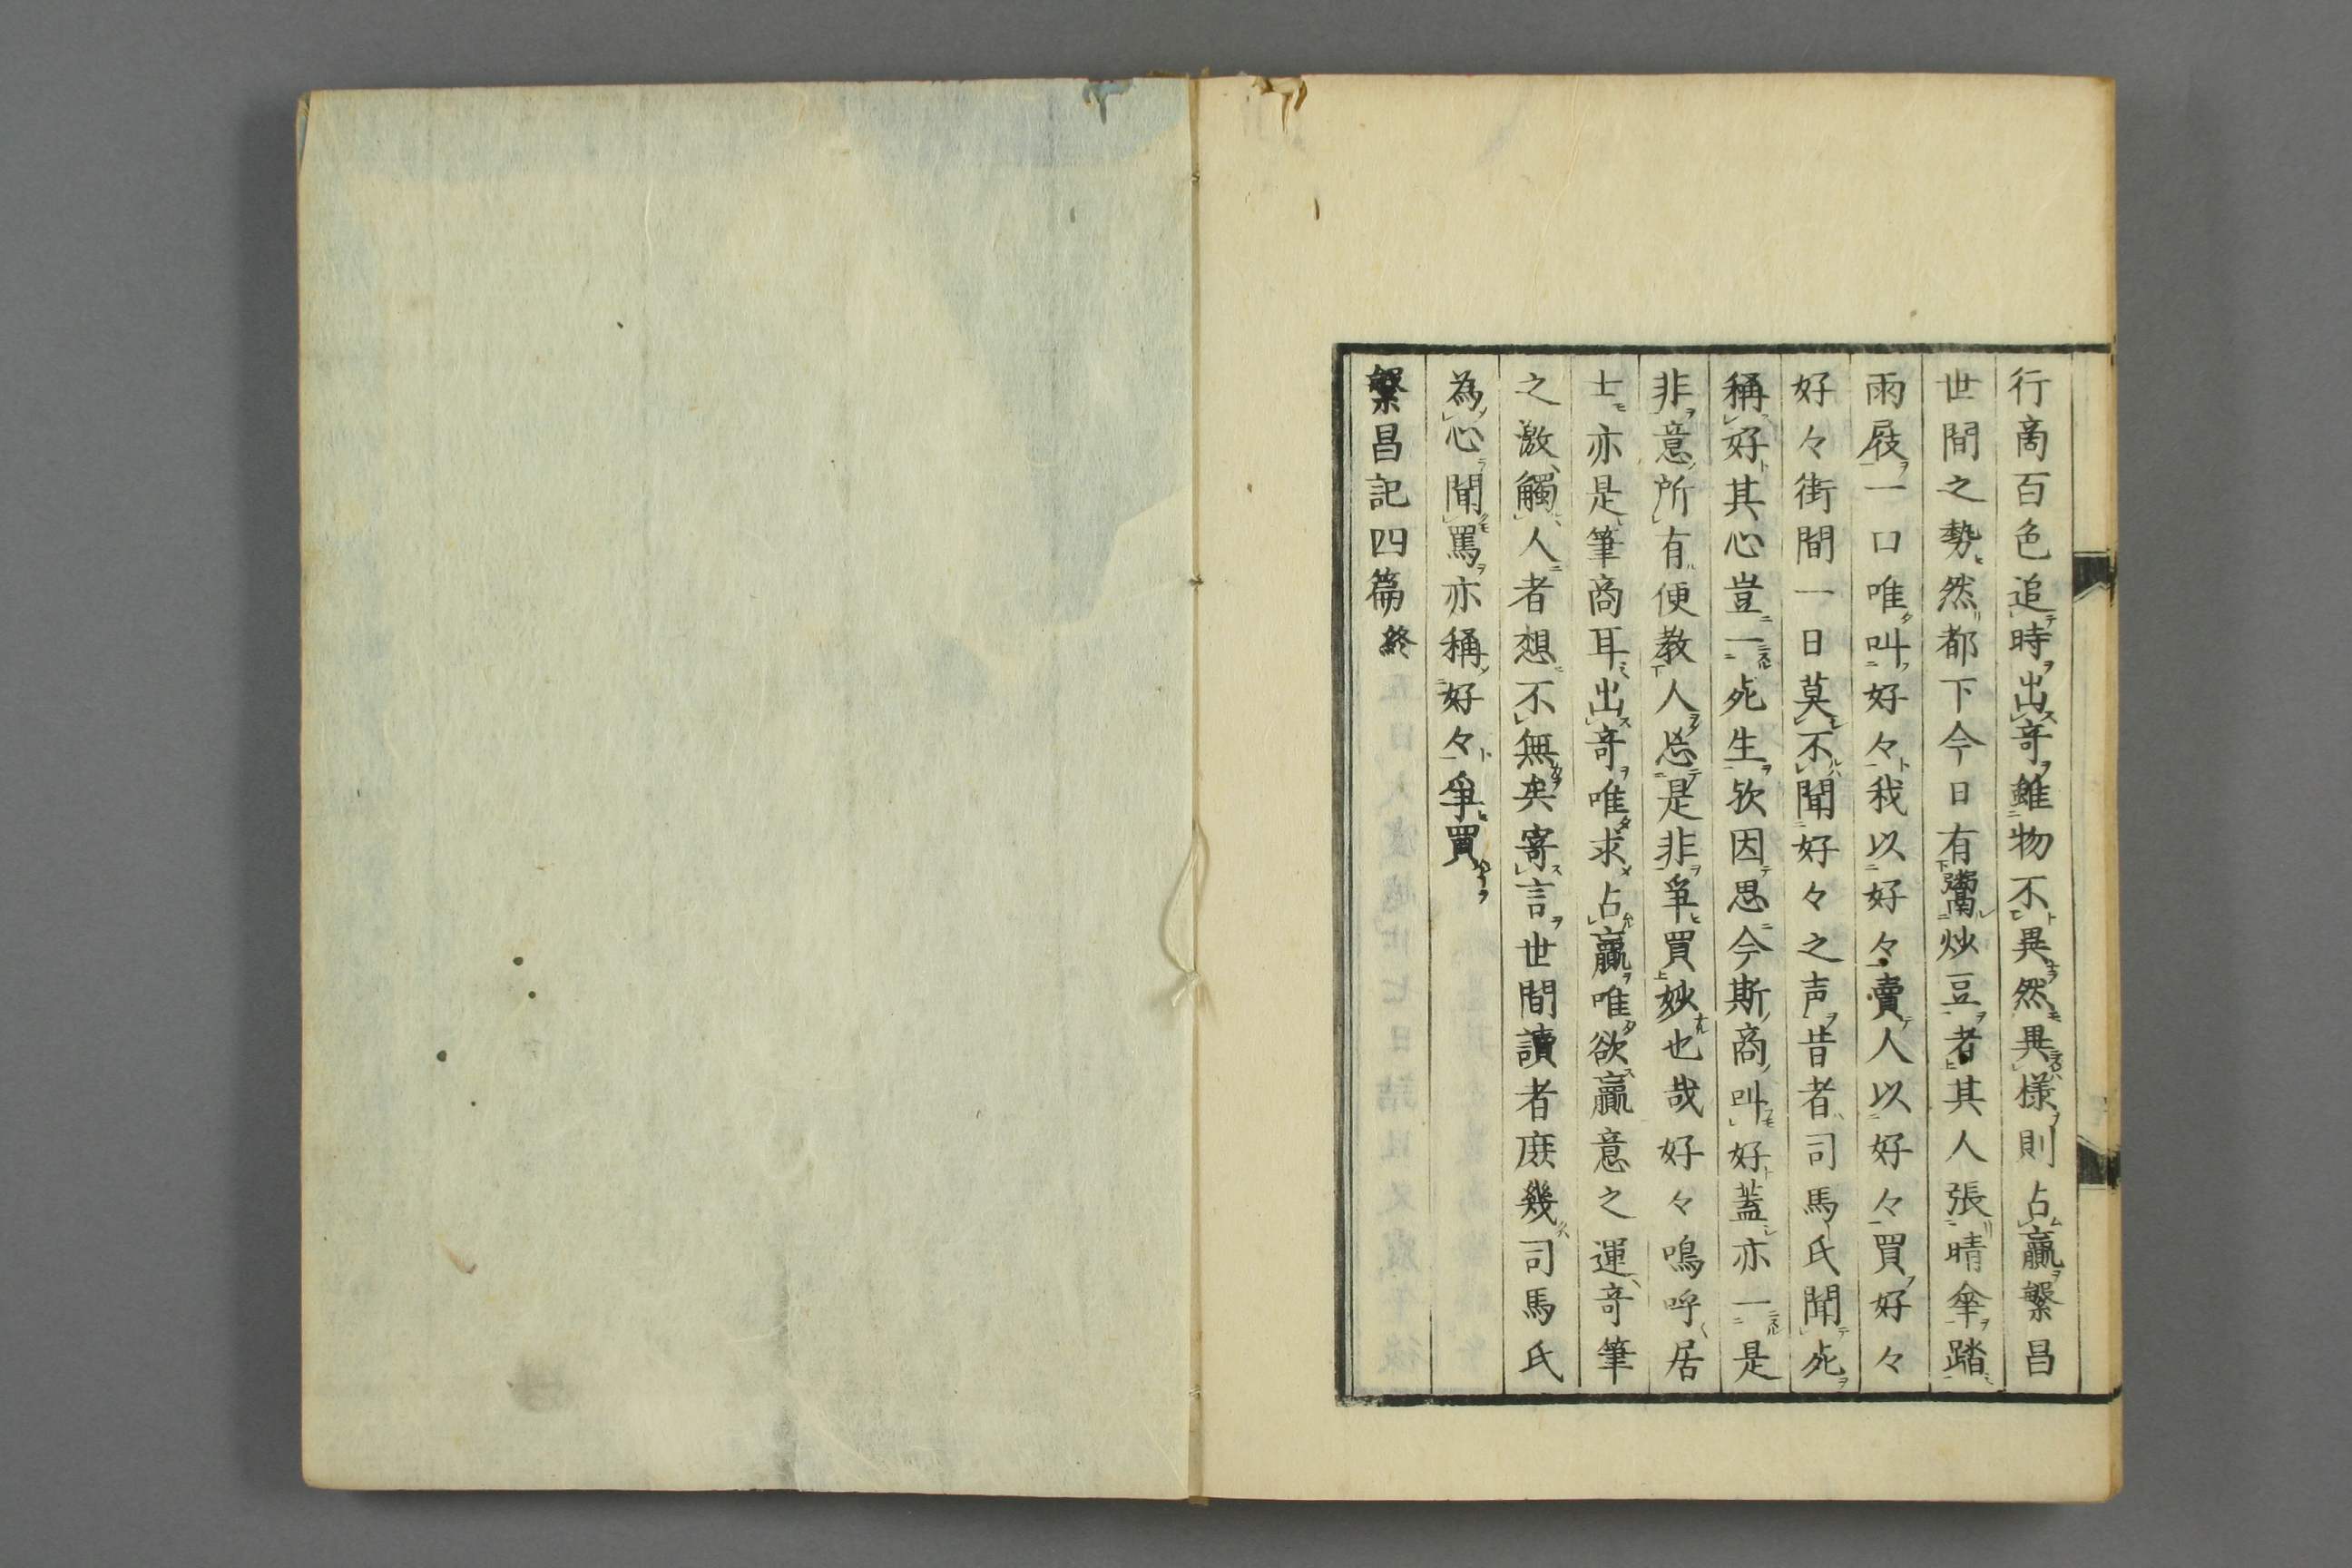 行商百色追時出奇雖物不異然異樣則占贏繁昌
世間之勢然都下今日有鬻炒豆者其人張晴傘踏
雨屐一口唯叫好々我以好々賣人以好々買好々
好々街間一日莫不聞好々之声昔者司馬氏聞死
稱好其心豈一死生欤因思今斯商叫好蓋亦一是
非意所有便教人忘是非爭買妙也哉好々鳴呼居
士亦是筆商耳出奇唯求占贏唯欲贏意之運奇筆
之激觸人者想不無矣寄言世間讀者庶幾司馬氏
為心聞罵亦稱好々爭買
繁昌記四篇終